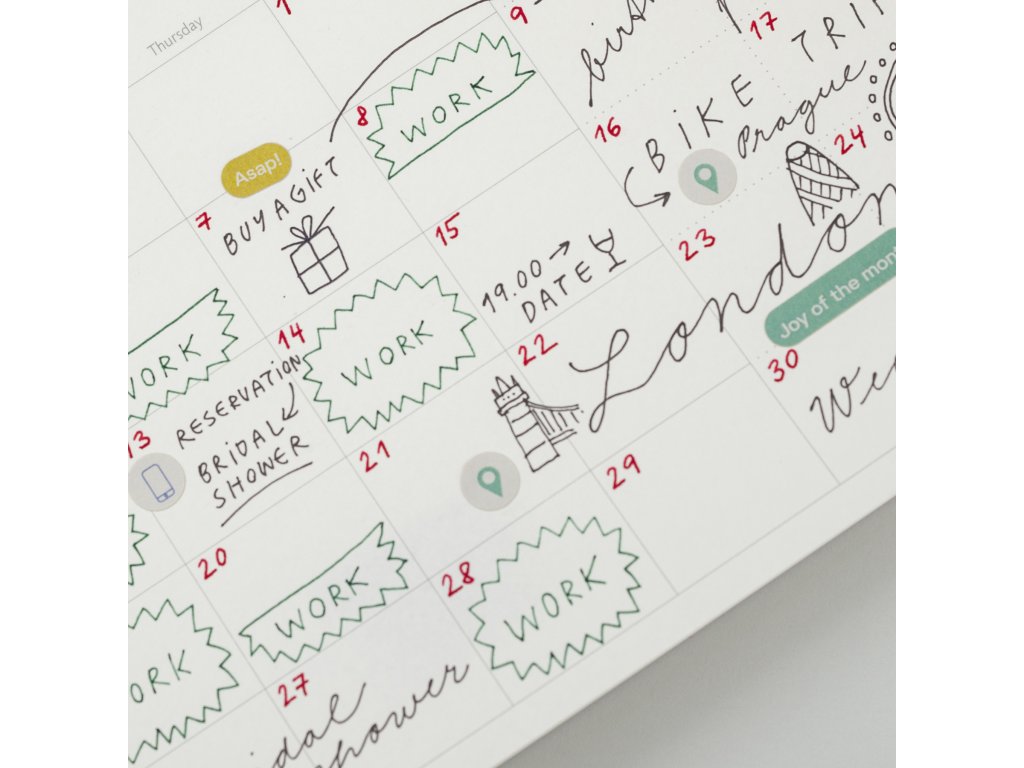 Thursday
1
7
8
9
Asap!
BUY A GIFT
WORK
WORK
13
14
15
16
17
RESERVATION
BRIDAL
SHOWER
WORK
19.00 → DATE
BIKE TRI
Prague
20
21
22
23
24
WORK
London
Joy of the mon
27
28
29
30
WORK
WORK
shower